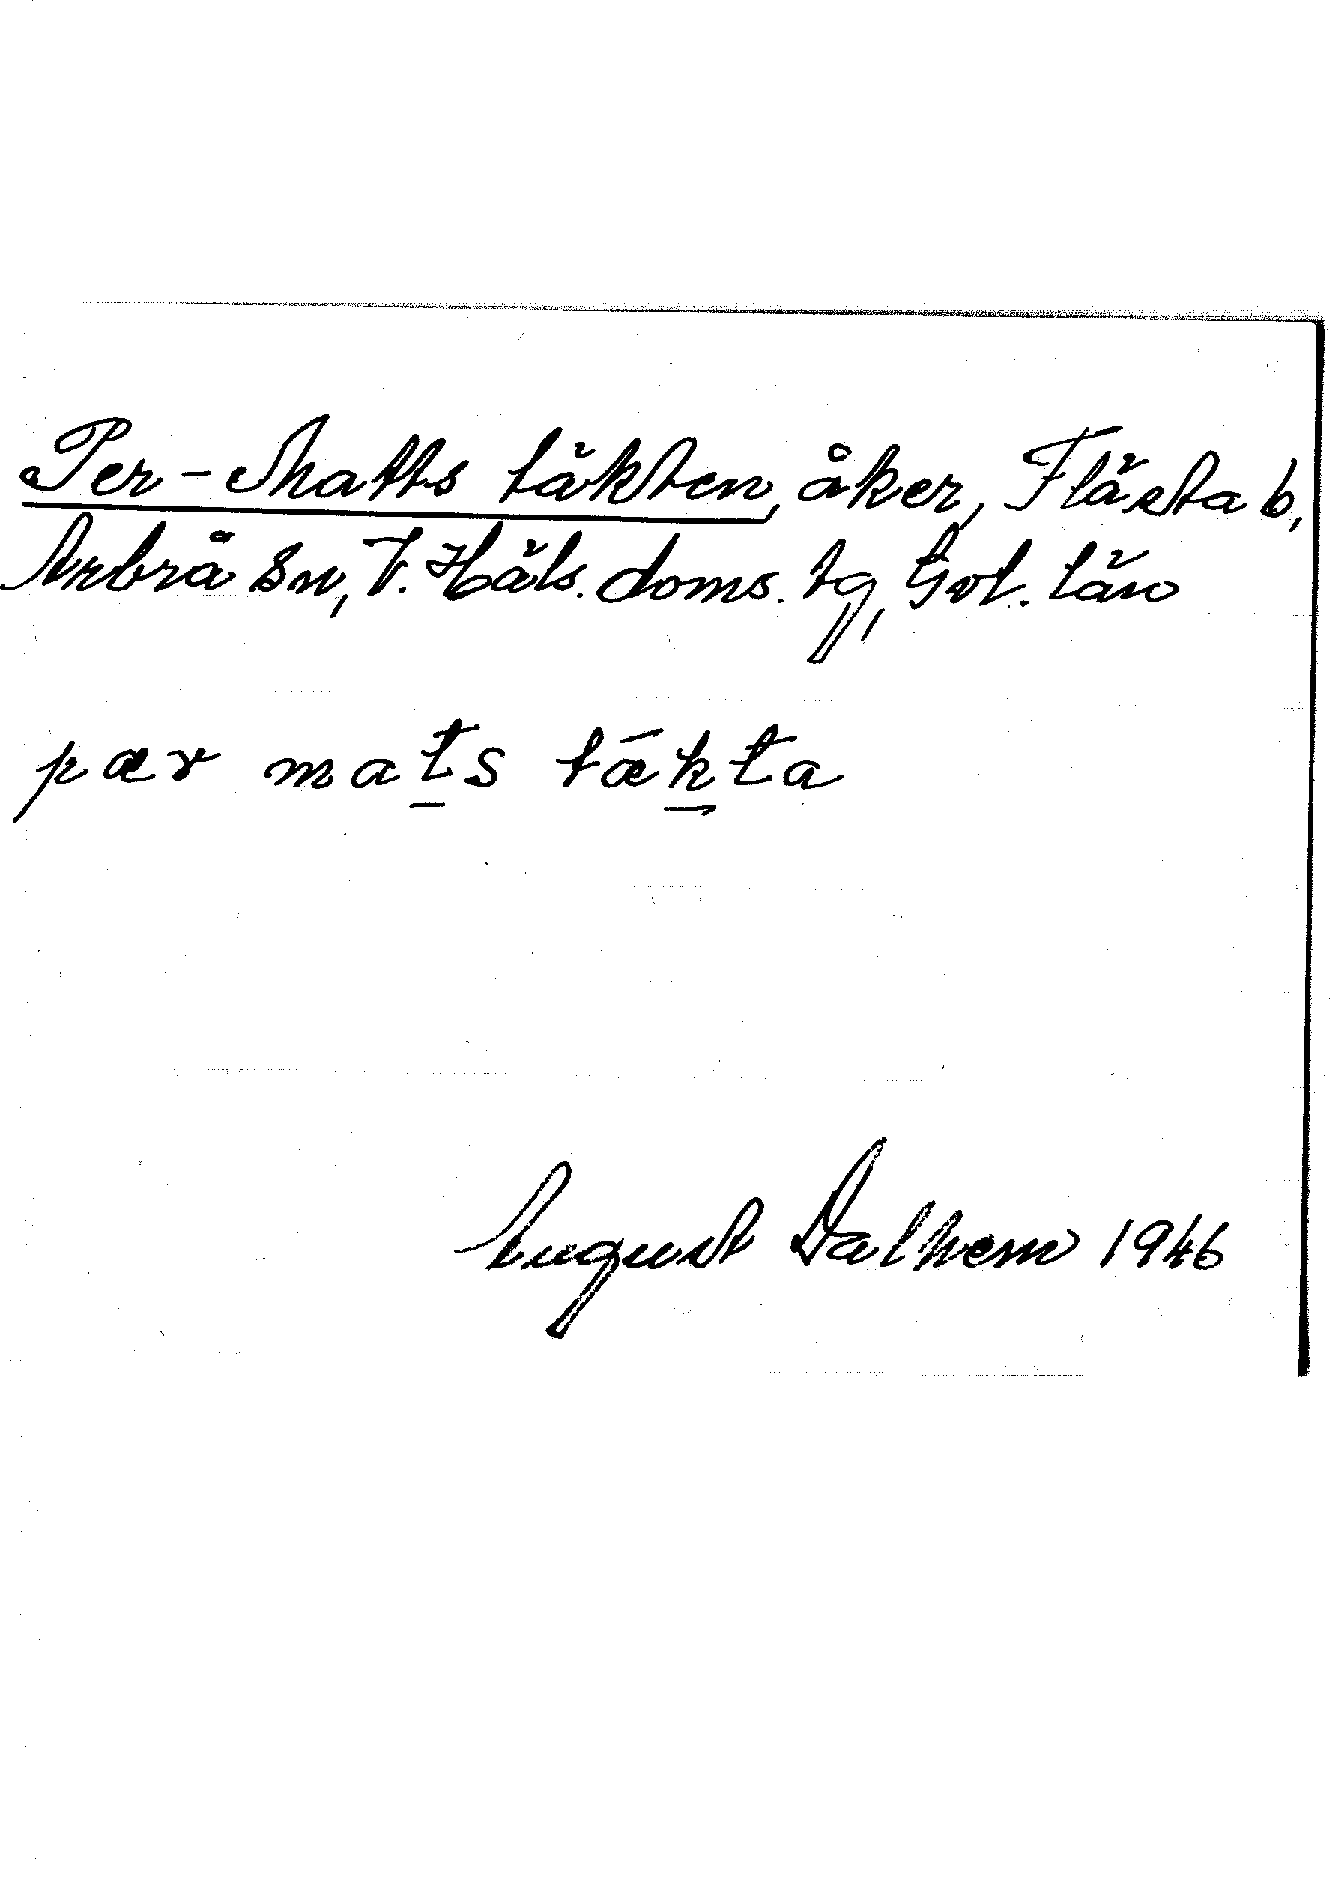 Per-Matts täkten, åker, Flästa b,
Arbrå sn, V. Häls. doms. tg, Gvl. län
pær mats tækta
August Dalhem 1946